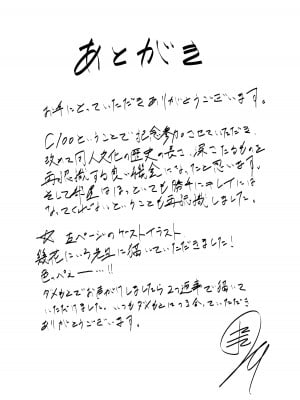 あとがき
お手にとっていただきありがとうございます。
C100ということで記念参加させていただき、
改めて同人文化の歴史の長さ、深さたるものを
再認識する良い機会になったと思います。
そして部屋はほっといても勝手にキレイには
なってくれないということも再認識しました。
左ページのゲストイラスト
先生に描いていただきました!
色っぺぇ…!!
ダメもとでお声がけしましたら2つ返事で描いて
いただけました。いつもダメもとにつき合っていただき
ありがとうございます。